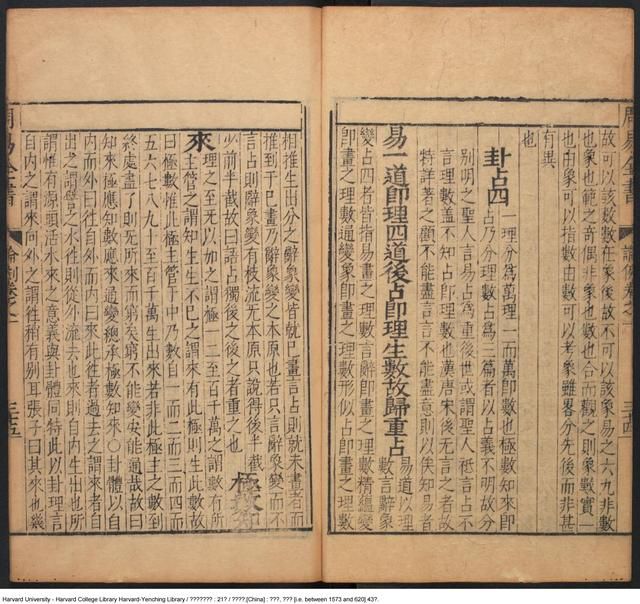 故可以該數數在象後故不可以該象易之六九非數
也象也範之奇偶非象也數也合而觀之則象數實一
也由象可以指數由數可以考象雖畧分先後而非甚
有異
也
卦占四
一理分爲萬理一而萬即數也極數知來即
占乃分理數占爲二篇者以占義不明故分
別明之聖人言易占爲重後世或謂聖人祗言占不
言理數蓋不知占即理數也漢唐宋後无言之者故
特詳著之顧不能盡言言不能盡意則以俟知易者
易一道即理四道後占即理生數故歸重占
易道以理
數言辭象
變占四者皆指易畫之理數言辭即畫之理數精蘊變
即畫之理數通變象即畫之理數形似占即畫之理數
相推生出分之辭象變皆就已畫言占則就未畫者而
推到于已畫乃辭象變之本原也若只言辭象變而不
言占則辭象變有枝流无本原只說得後半截
少前半截故曰語占獨後之後之者重之也
極數知
來
理之至无以加之謂極一二三至百千萬之謂數有所
主管之謂知生生不已之謂來有此極則生此數故
曰極數惟此極主管于中乃數自一而二而三而四而
五六七八九十至百千萬生出來若非此極主之數到
終處盡了則无所來而窮矣窮不能變安能通哉故曰
知來極應知數應來通變總承極數知來○卦體以自
内而外曰往自外而内曰來此往者過去之謂來者自
出之謂譬之水往則從外流去也來則自内生出也所
謂惟有源頭活水來之意義與卦體同特此以卦理言
自内之謂來向外之謂往稍有別耳張子曰其來也幾
周易全書
論例卷之一
三十四
周易全書
論例卷之一
三十五
Harvard University - Harvard College Library Harvard-Yenching Library / ??????? : 21? / ????.[China] : ???, ??? [i.e. between 1573 and 620].43?.